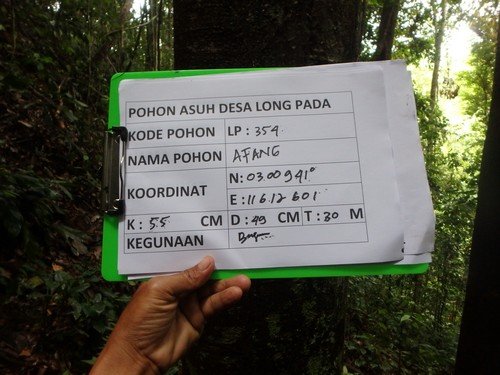 POHON ASUH DESA LONG PADA
KODE POHON LP : 354.
NAMA POHON AFANG
KOORDINAT N : 03.00941°
E : 116.12 601
K : 55 CM D : 49 CM T : 30 M
KEGUNAAN